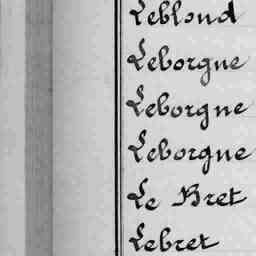 Leblond
Leborgne
Leborgne
Leborgne
Le Bret
Lebret